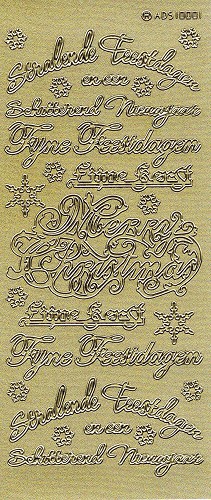 ADS
Stralende Feestdagen
en een
Schitterend Nieuwjaar
Fijne Feestdagen
Fijne Kerst
Merry
Christmas
Fijne Kerst
Fijne Feestdagen
Stralende Feestdagen
en een
Schitterend Nieuwjaar